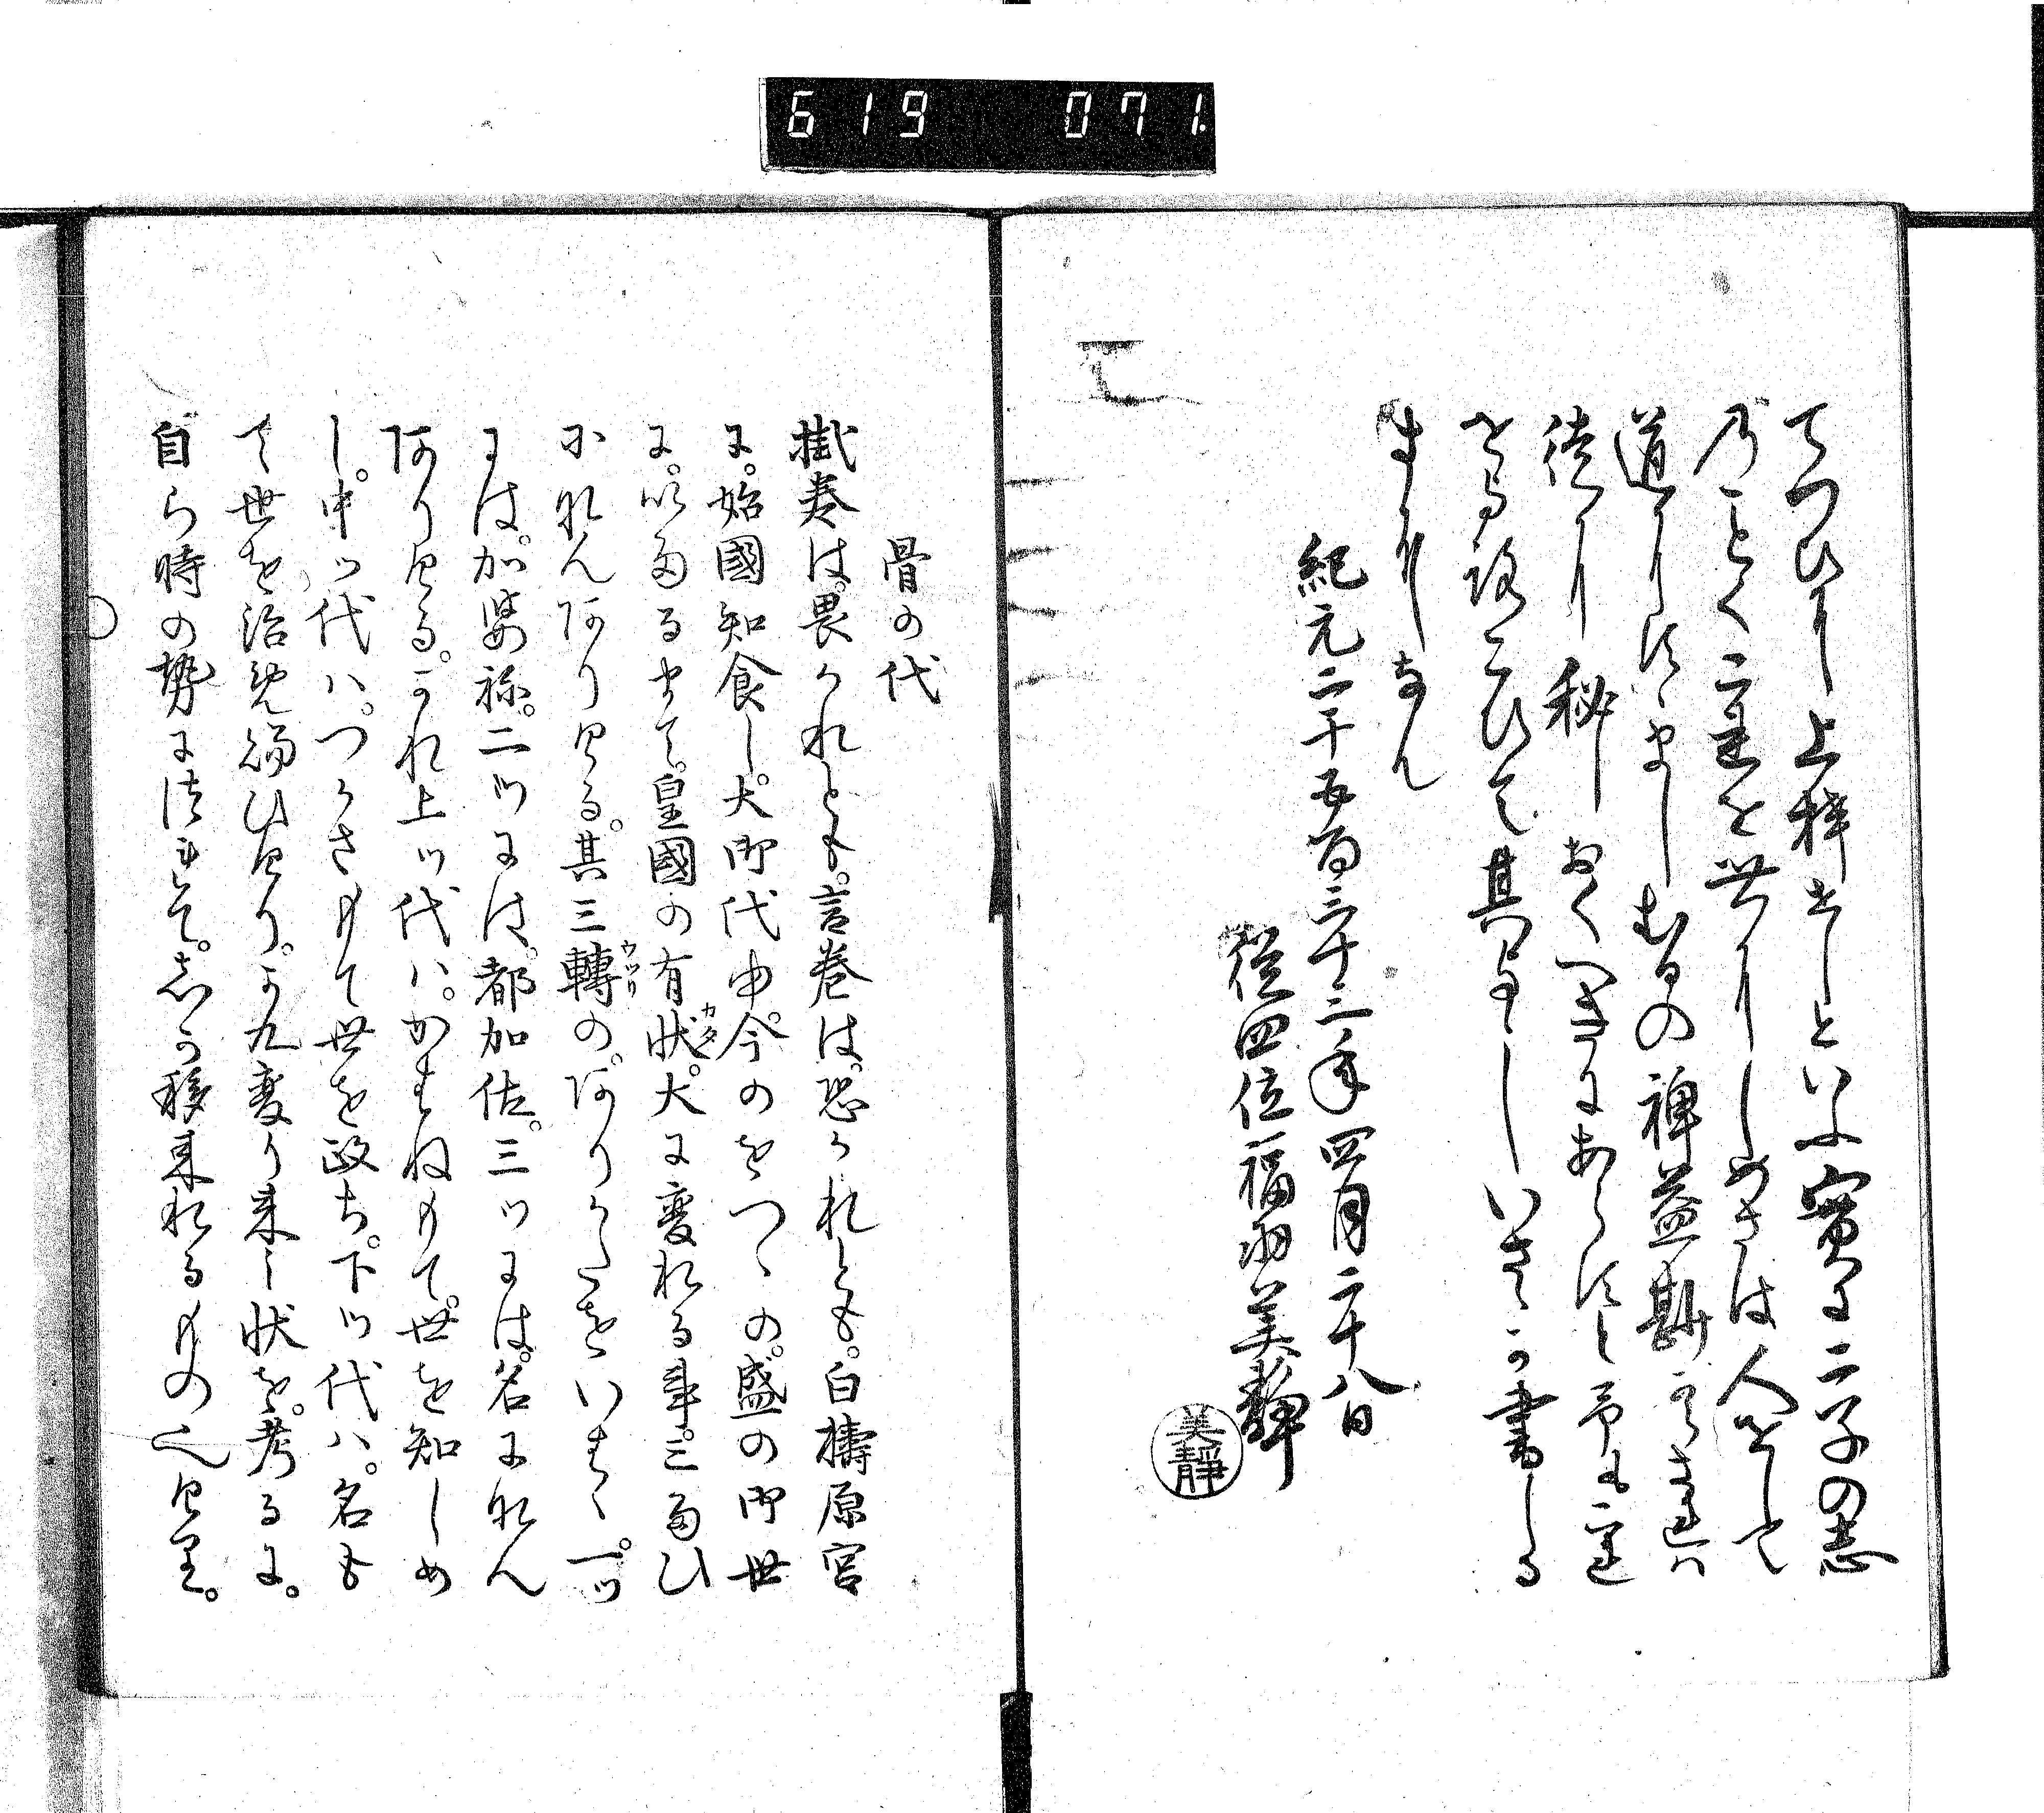 619 071
てつひに上梓せしといふ實に二子の志
乃ことく二書を世にしめさは人をして
道にすゝましむるの裨益
徒に秘しおくへきにあらすと予も
其よしいさゝか書しる
すになん
紀元二千五百三十三年四月二十八日
従四位福羽美静
美静
骨の代
掛巻は。畏かれとも。言巻は。恐かれとも。白檮原宮
に。始國知食し。大御代由。今のをつゝの。盛の御世
に。以たるまて。皇國の有状。大に変れる事。三たひ
カタ
になんありける。其三轉の。ありかたをいはゝ。一ツ
ウツリ
には。加婆祢。二ツには。都加佐。三ツには。名になん
ありける。かれ上ツ代ハ。かはねもて。世を知しめ
し。中ツ代ハ。つかさもて世を政ち。下ツ代ハ。名も
て世を治め給ひけり。かく変り来し状を。考るに。
自ら時の勢に しか移来れるものなりけり。